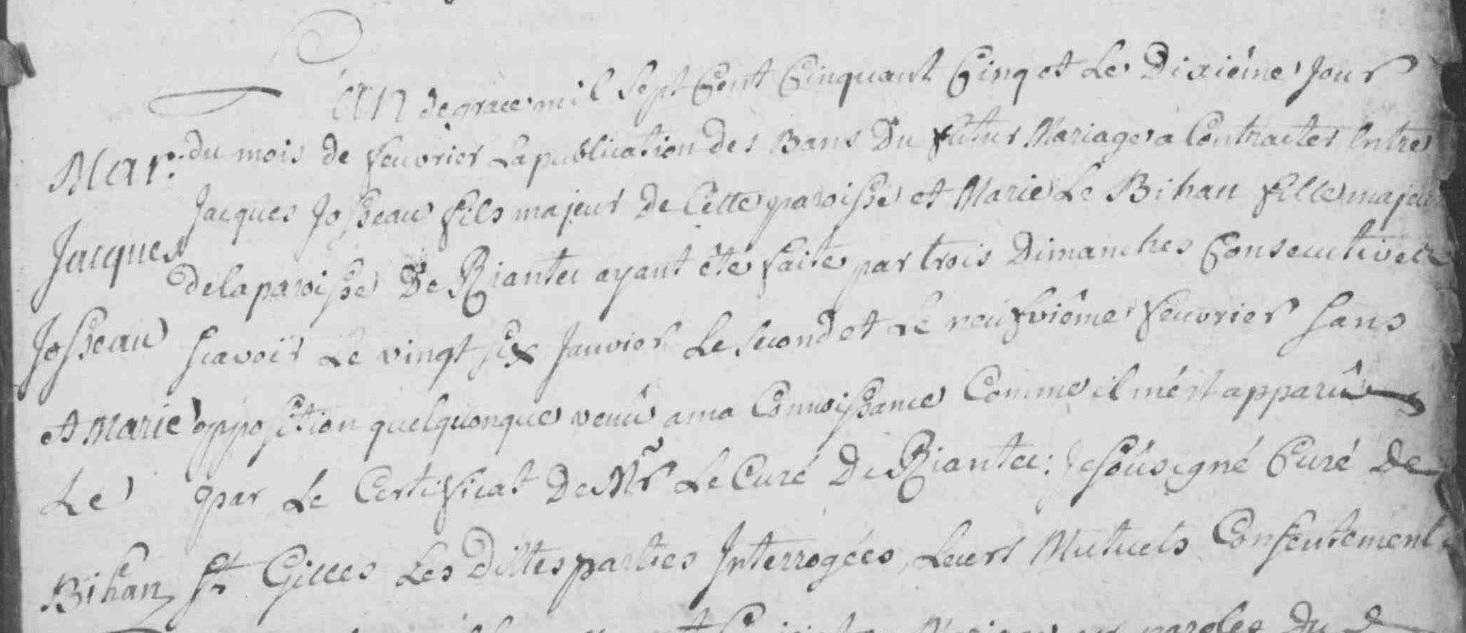 L'An de grace mil Sept Cent Cinquant Cinq et Le Dixiême Jour
Mar. du mois de feuvrier La publication des Bans Du futur Mariage a Contracter Entre
Jacques Josseau fils majeur de Cette paroisse et Marie Le Bihan fille majeur
Jacques de la paroisse De Riantec ayant êté faite par trois Dimanches Consecutives
Josseau scavoir Le vingt six Janvier Le second et Le neufviême feuvrier sans
et Marie opposition quelquonque venû a ma Connoissance Comme il m'est apparû
Le par Le Certificat De Mr Le Curé De Riantec: Je soûsigné Curé De
Bihan St Gilles Les Dittes parties Interrogées, Leurs Mutuels Consentement
Mariage par paroles Du